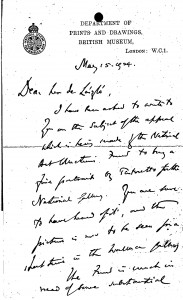 DEPARTMENT OF
PRINTS AND DRAWINGS,
BRITISH MUSEUM,
LONDON: W.C.1.
May 15. 1924.
Dear
I have been asked to write to
you on the subject of the appeal
which is being made by the National
Art Collections Fund to buy a
fine portrait by Tintoretto for the
National Gallery. You are sure
to have heard of it, and the
picture is now to be seen for a
short time in the
The Fund is much in
need of some substantial